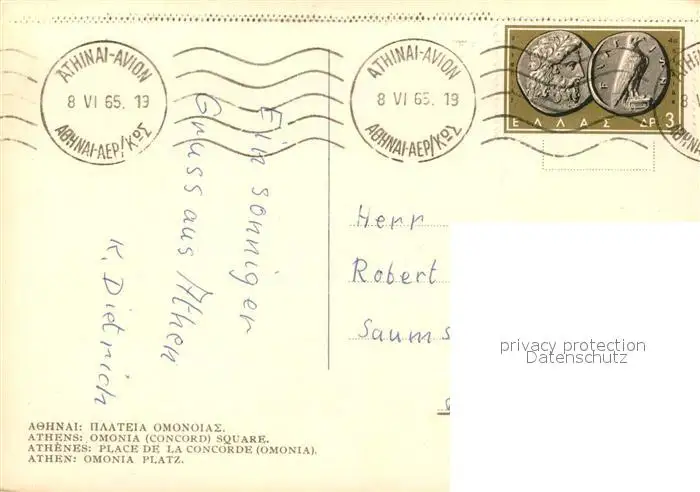 ATHINAI-AVION
8 VI 65. 19
ΑΘΗΝΑΙ-ΑΕΡ/ΚΩΣ
ATHINAI-AVION
8 VI 65. 19
ΑΘΗΝΑΙ-ΑΕΡ/ΚΩΣ
ΕΛΛΑΣ ΔΡ 3
Ein sonniger
Gruss aus Athen
K. Dietrich
Herr
Robert
Saums
privacy protection
Datenschutz
ΑΘΗΝΑΙ: ΠΛΑΤΕΙΑ ΟΜΟΝΟΙΑΣ.
ATHENS: OMONIA (CONCORD) SQUARE.
ATHÈNES: PLACE DE LA CONCORDE (OMONIA).
ATHEN: OMONIA PLATZ.